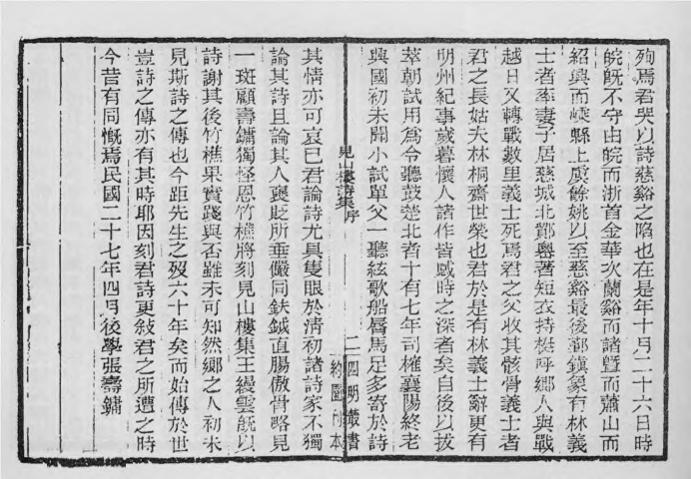 殉焉君哭以詩慈谿之陷也在是年十月二十六日時
皖旣不守由皖而浙首金華次蘭谿而諸曁而蕭山而
紹興而嵊縣上虞餘姚以至慈谿最後鄞鎮象有林義
士者率妻子居慈城北鄮粤著短衣持梃呼鄉人與戰
越日又轉戰數里義士死焉君之父收其骸骨義士者
君之長姑夫林桐齋世榮也君於是有林義士辭更有
明州紀事歲暮懷人諸作皆感時之深者矣自後以拔
萃朝試用爲令聽鼓楚北者十有七年司榷襄陽終老
與國初未聞小試單父一聽絃歌船脣馬足多寄於詩
見山樓詩集序
二
四明叢書
約園刊本
其情亦可哀已君論詩尤具隻眼於清初諸詩家不獨
論其詩且論其人襃貶所垂儼同鈇鉞直腸傲骨略見
一斑顧壽鏞獨怪恩竹樵將刻見山樓集王縵雲旣以
詩謝其後竹樵果實踐與否雖未可知然鄉之人初未
見斯詩之傳也今距先生之歿六十年矣而始傳於世
豈詩之傳亦有其時耶因刻君詩更敍君之所遭之時
今昔有同慨焉民國二十七年四月後學張壽鏞